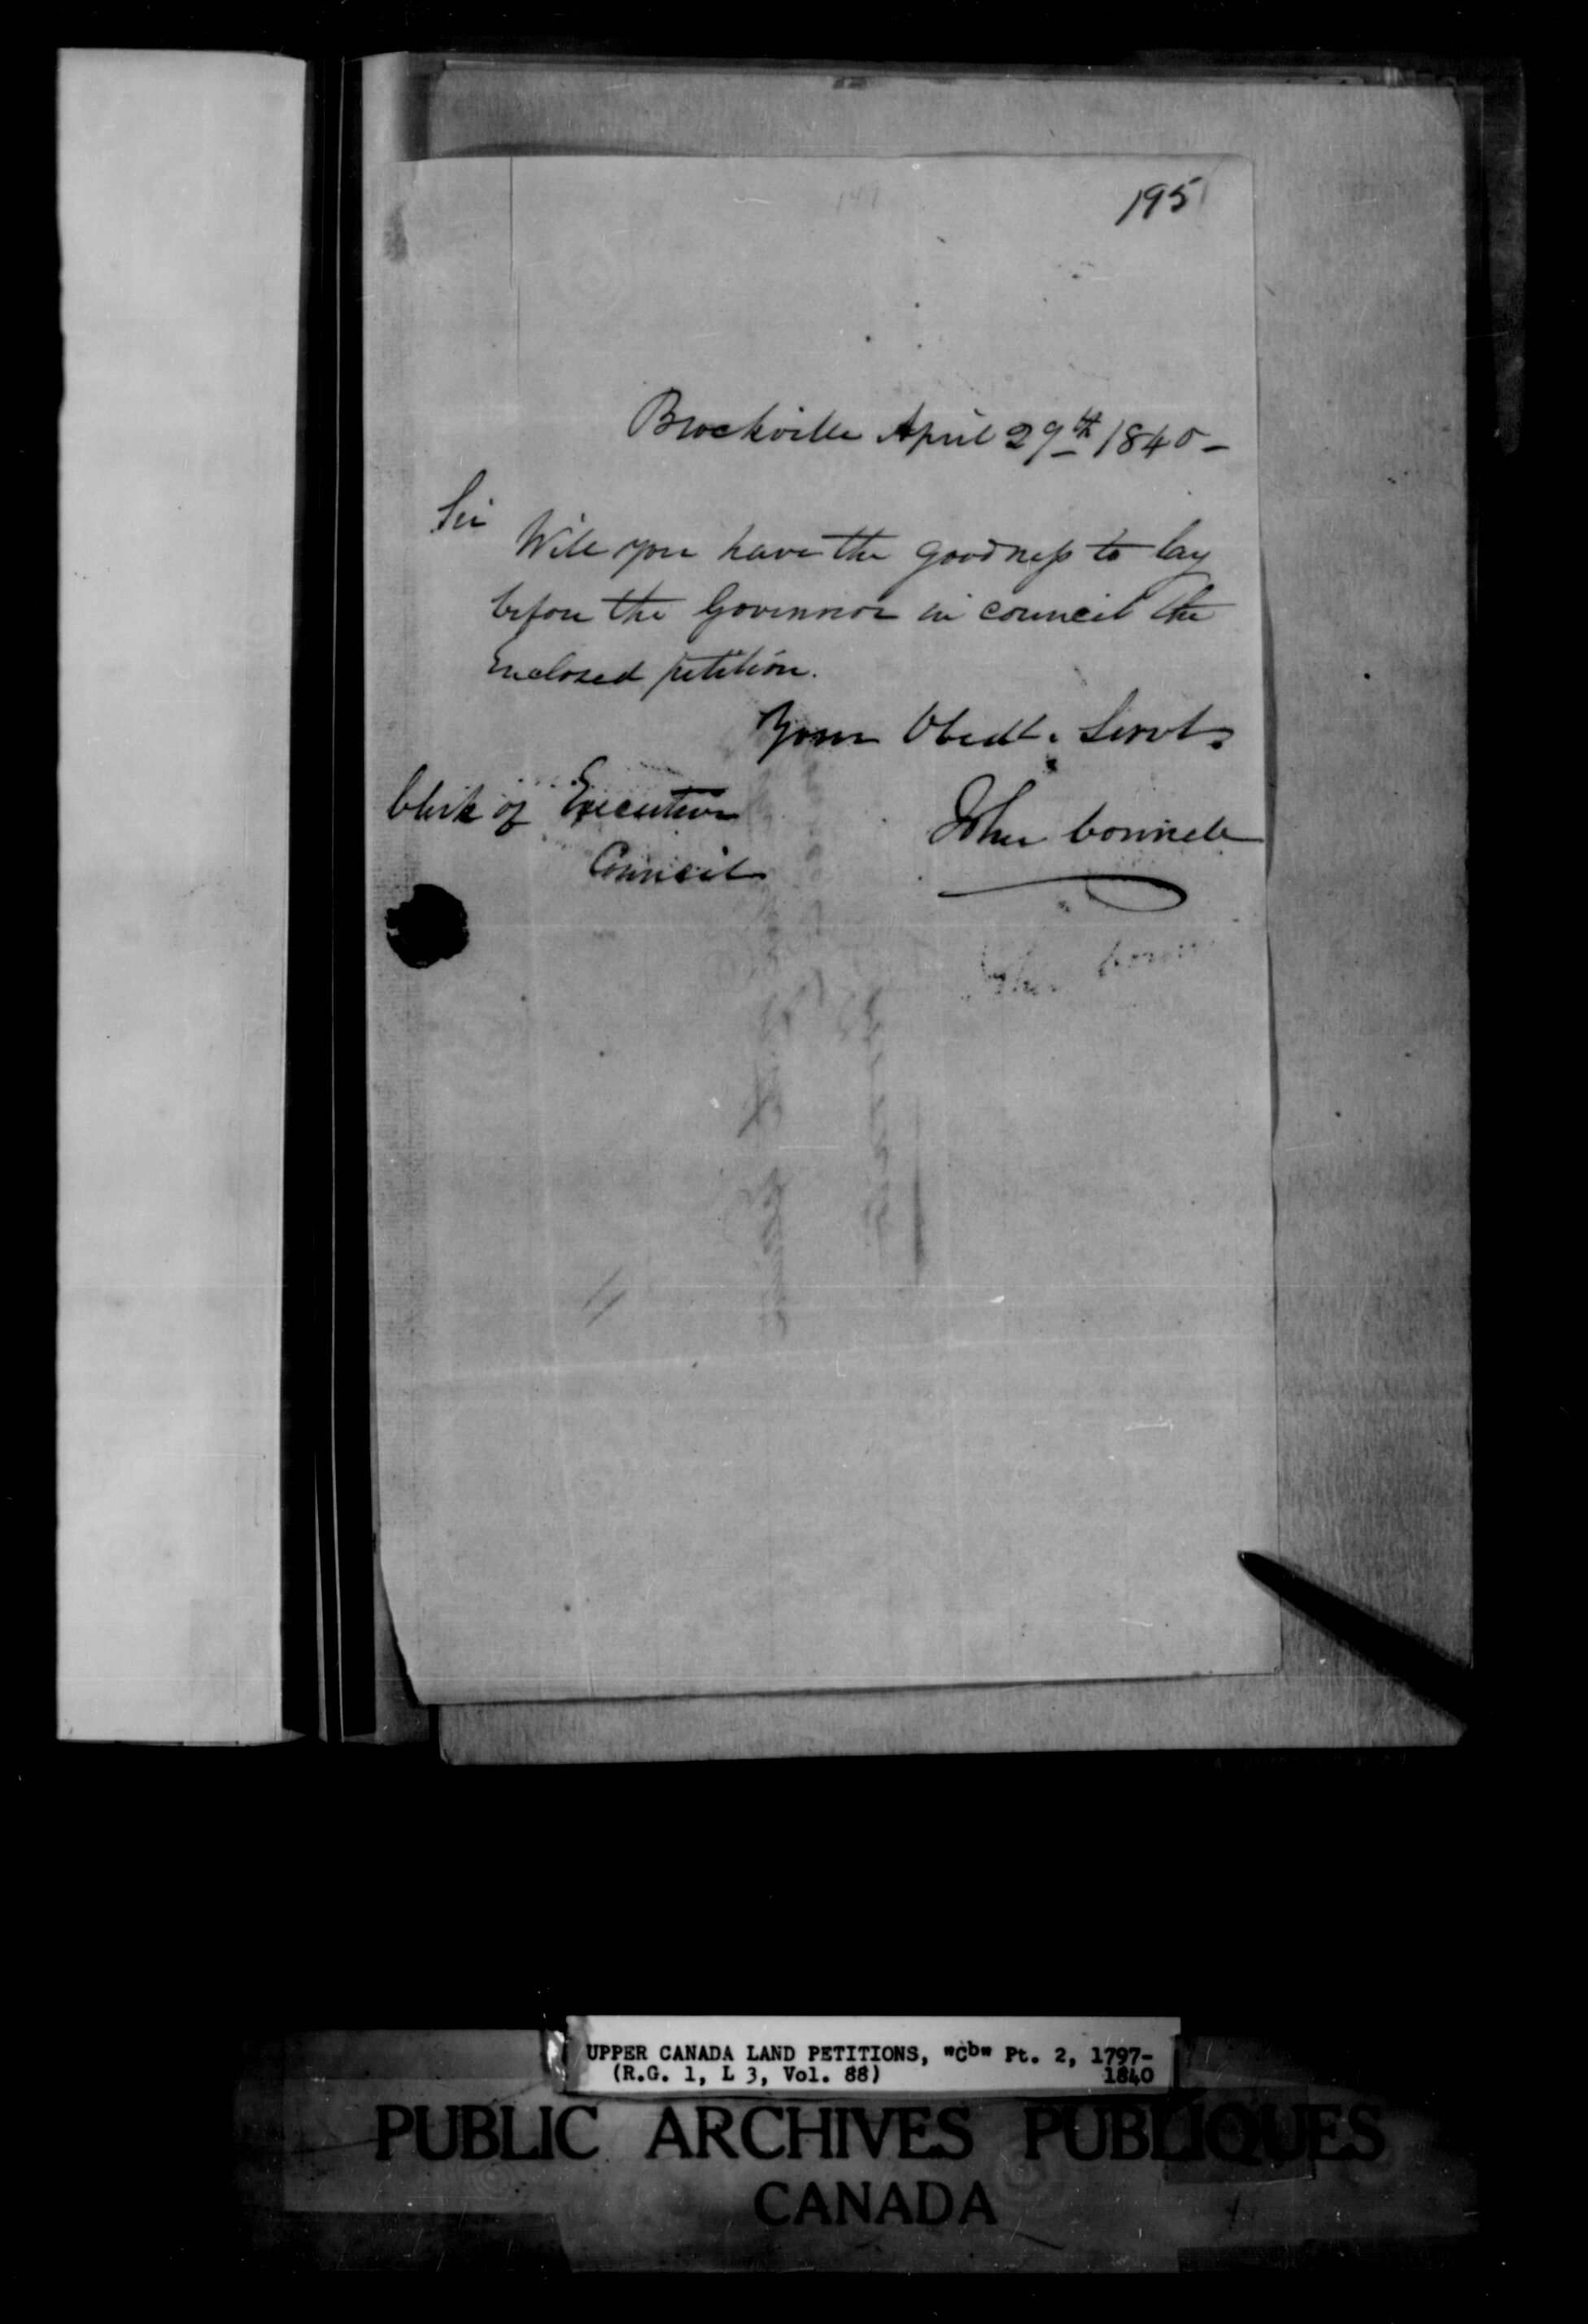 195
Brockville April 29th 1840 -
Sir
Will you have the goodness to lay
before the Governor in council the
Enclosed petition.
Your Obedt. Servt.
Clerk of Executive
Council
John Connell
UPPER CANADA LAND PETITIONS, "Cb" Pt. 2, 1797-
(R.G. 1, L 3, Vol. 88) 1840
PUBLIC ARCHIVES PUBLIQUES
CANADA